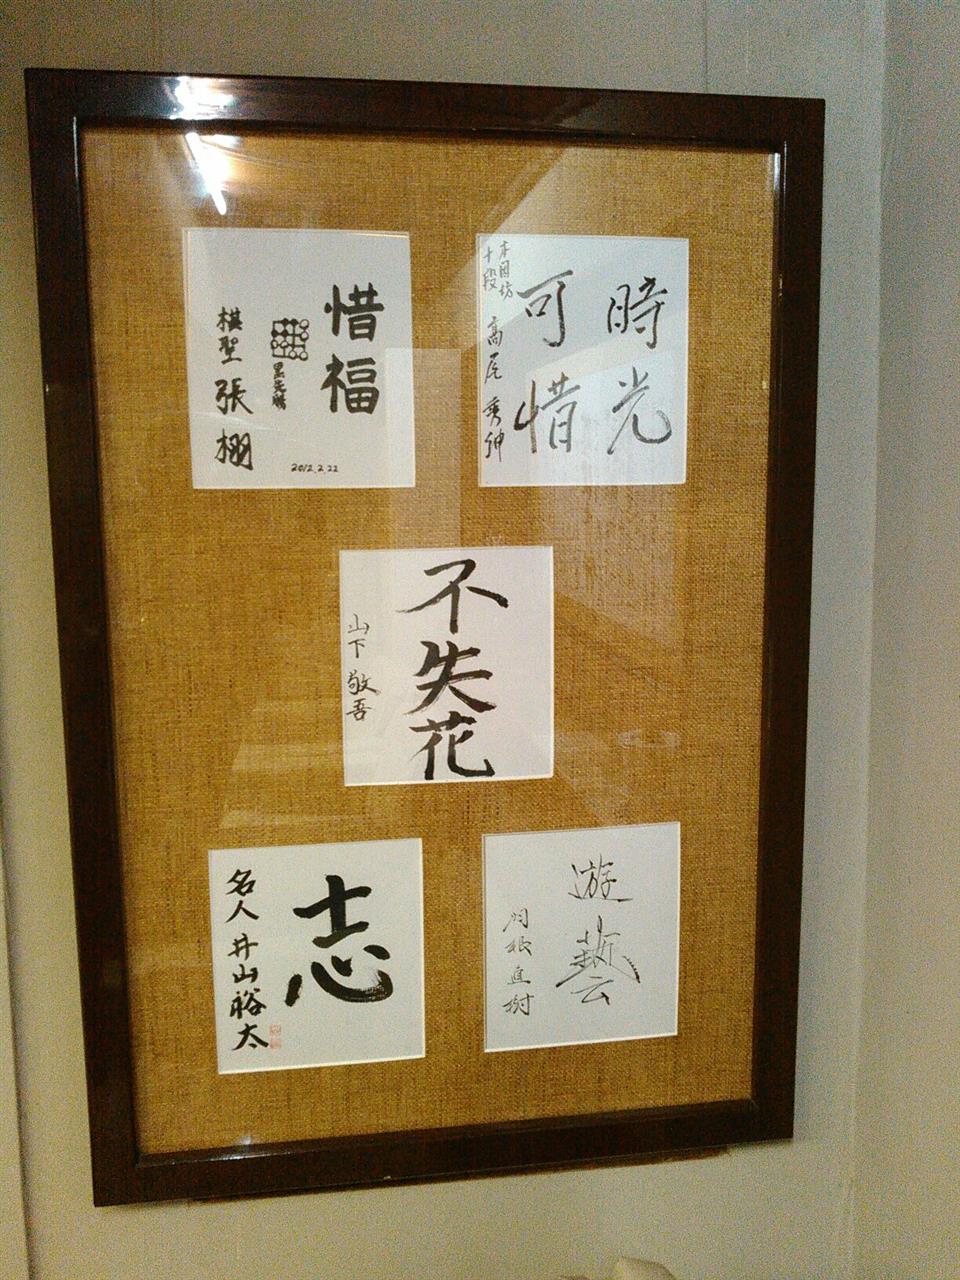 惜福
黒先勝
棋聖 張栩
2012.2.22
時光
可惜
本因坊
十段
高尾秀紳
不失花
山下敬吾
志
名人 井山裕太
遊藝
関根直樹